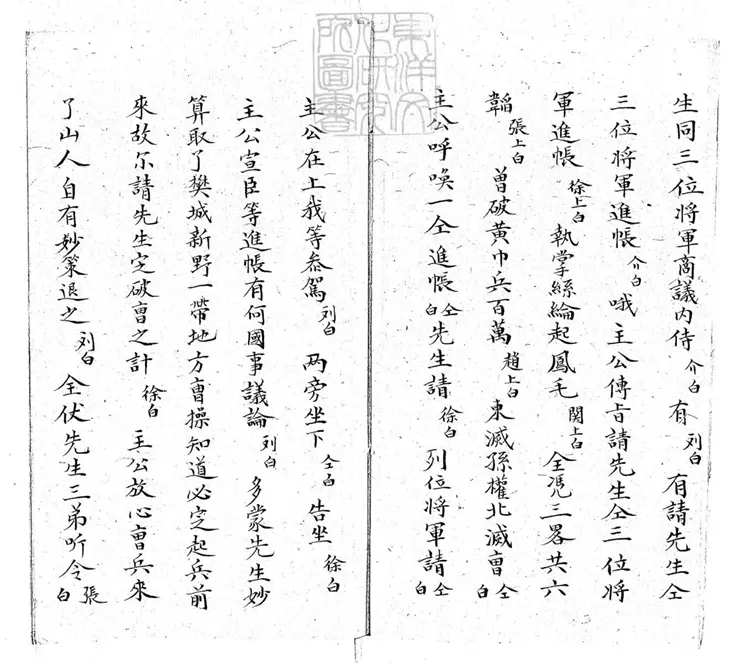 生同三位將軍商議內侍 介白 有 刘白 有請先生仝
三位將軍進帳 介白 哦主公傳㫖請先生仝三位將
軍進帳 徐上白 執掌絲綸起鳳毛 関上白 全凴三畧共六
韜 張上白 曾破黃巾兵百萬 趙上白 東滅孫權北滅曹 仝白
主公呼喚一仝進帳 仝白 先生請 徐白 列位將軍請 仝白
主公在上我等叅駕 刘白 两旁坐下 仝白 告坐 徐白
主公宣臣等進帳有何國事議論 刘白 多蒙先生妙
算取了樊城新野一帶地方曹操知道必定起兵前
來故尔請先生定破曹之計 徐白 主公放心曹兵來
了山人自有妙策退之 刘白 全伏先生三弟听令 張白
東洋文化研究所圖書